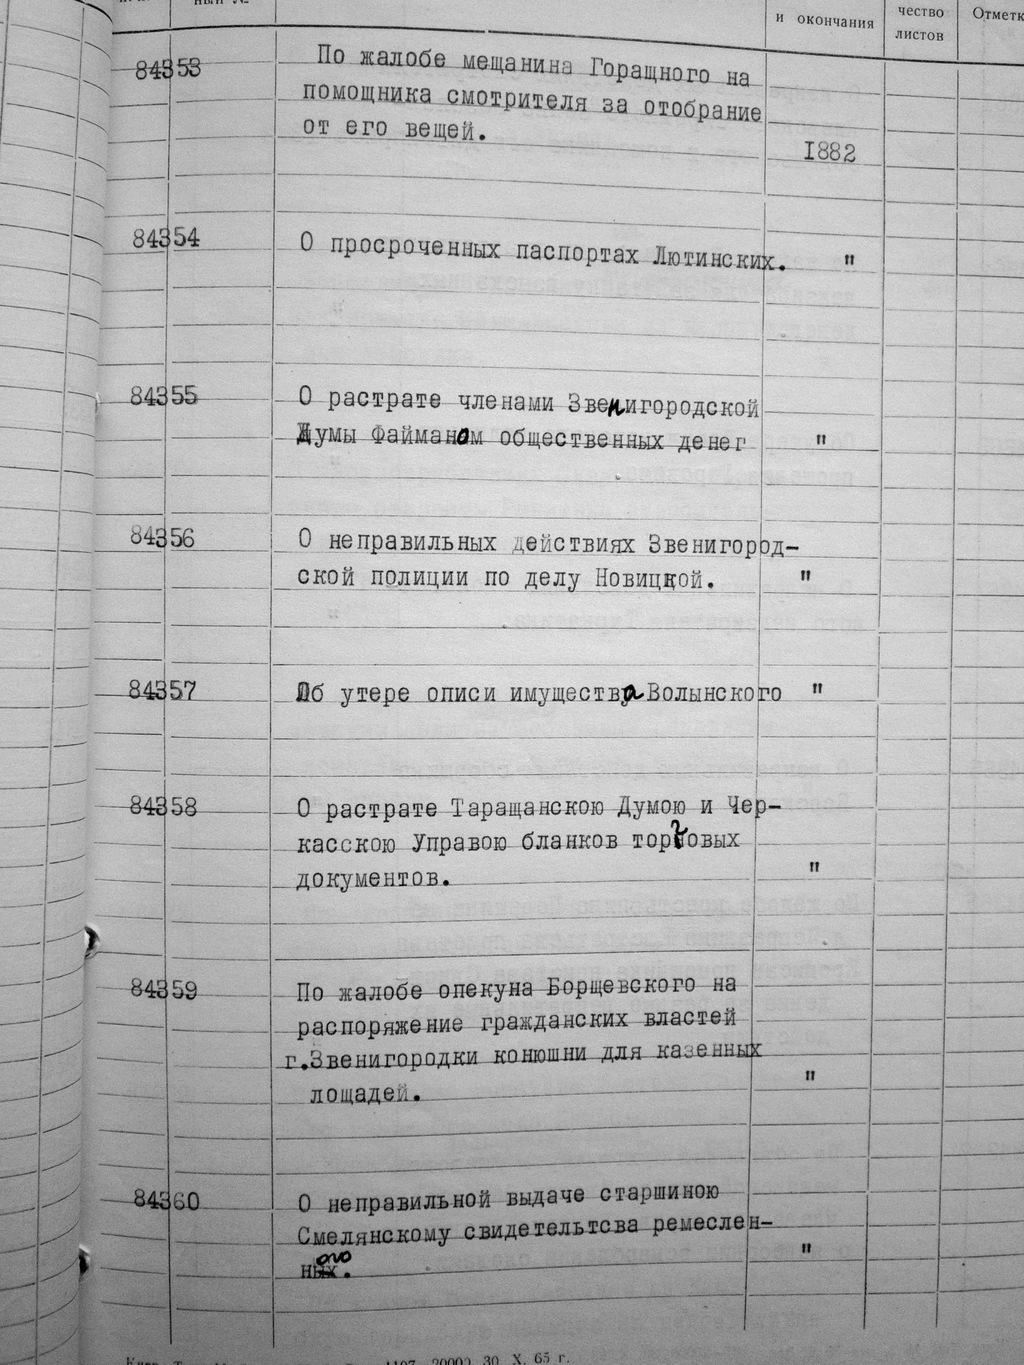 и окончания
чество
листов
84353
По жалобе мещанина Горащного на
помощника смотрителя за отобрание
от его вещей.
1882
84354
О просроченных паспортах Лютинских. "
84355
О растрате членами Звенигородской
Думы Файманом общественных денег "
84356
О неправильных действиях Звенигород-
ской полиции по делу Новицкой. "
84357
Об утере описи имущества Волынского "
84358
О растрате Таращанскою Думою и Чер-
касскою Управою бланков торговых
документов. "
84359
По жалобе опекуна Борщевского на
распоряжение гражданских властей
г.Звенигородки конюшни для казенных
лощадей. "
84360
О неправильной выдаче старшиною
Смелянскому свидетельтсва ремеслен-
ного. "
20000 30. X. 65 г.